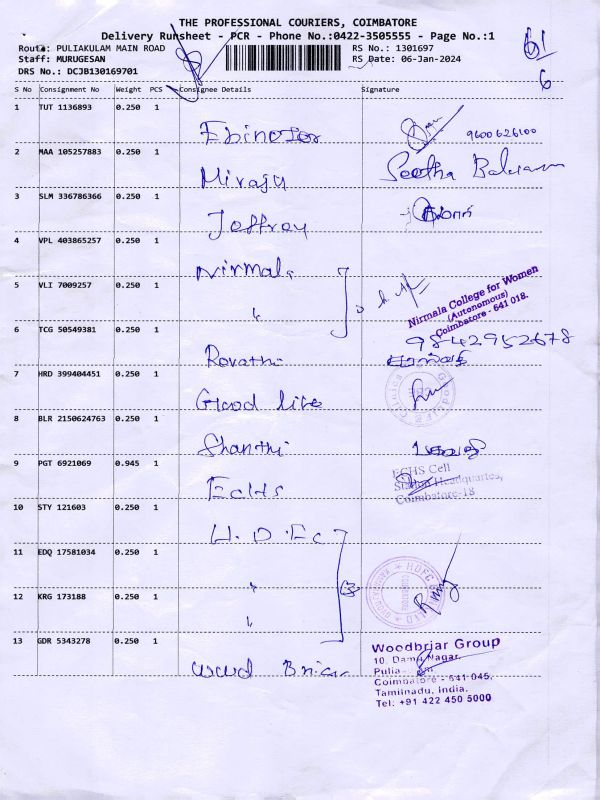 THE PROFESSIONAL COURIERS, COIMBATORE
Delivery Runsheet - PCR - Phone No.:0422-3505555 - Page No.:1
Route: PULIAKULAM MAIN ROAD
Staff: MURUGESAN
DRS No.: DCJB130169701
RS No.: 1301697
RS Date: 06-Jan-2024
61
6
S No Consignment No Weight PCS Consignee Details Signature
1 TUT 1136893 0.250 1
9600626100
2 MAA 105257883 0.250 1 Miraju Seetha
3 SLM 336786366 0.250 1 Jeffroy
4 VPL 403865257 0.250 1 Nirmala
5 VLI 7009257 0.250 1 "
Nirmala College for Women
(Autonomous)
Coimbatore - 641 018.
6 TCG 50549381 0.250 1 Revathi 9842952678
7 HRD 399404451 0.250 1 Good life
8 BLR 2150624763 0.250 1 Shanthi
9 PGT 6921069 0.945 1 ECHS
ECHS Cell
Station Headquartes,
Coimbatore-18
10 STY 121603 0.250 1 H.D.Fc
11 EDQ 17581034 0.250 1 "
12 KRG 173188 0.250 1 "
13 GDR 5343278 0.250 1
Woodbriar Group
10, Damu Nagar,
Coimbatore - 641 045,
Tamilnadu, India.
Tel: +91 422 450 5000